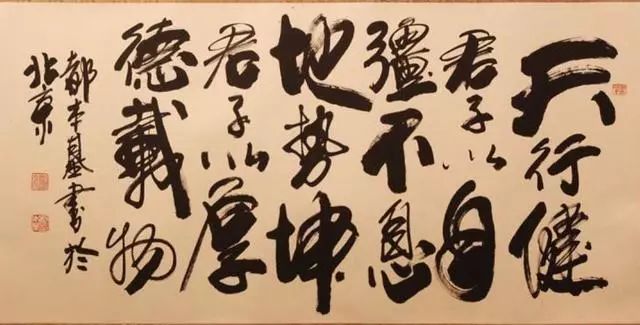 天行健
君子以自
彊不息
地势坤
君子以厚
德载物
都本基書於
北京